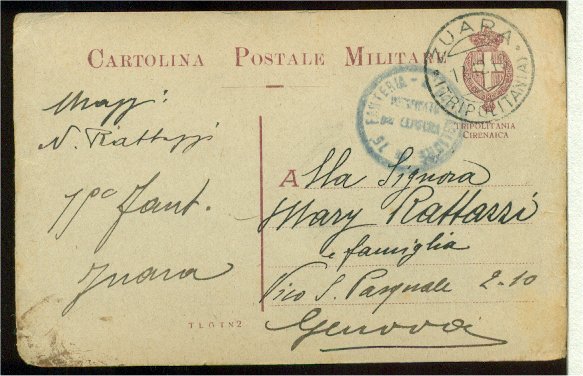 CARTOLINA POSTALE MILITARE
ZUARA
(TRIPOLITANIA)
TRIPOLITANIA
CIRENAICA
FANTERIA
Magg:
N. Rattazzi
Fant.
Zuara
Alla Signora
Mary Rattazzi
e famiglia
Vico S. Pasquale 2-10
Genova